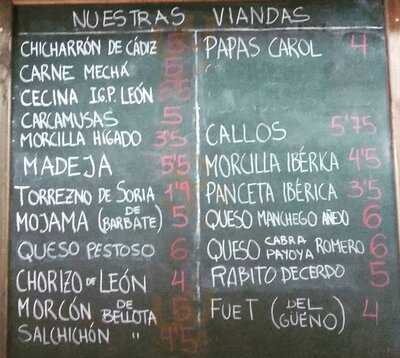 NUESTRAS VIANDAS
CHICHARRÓN DE CÁDIZ
CARNE MECHÁ 5
CECINA I.G.P. LEÓN
CARCAMUSAS 5
MORCILLA HIGADO 3'5
MADEJA 5'5
TORREZNO DE SORIA 1'9
MOJAMA (DE BARBATE) 5
QUESO PESTOSO 6
CHORIZO DE LEÓN 4
MORCÓN DE BELLOTA
SALCHICHÓN "
PAPAS CAROL 4
CALLOS 5'75
MORCILLA IBÉRICA 4'5
PANCETA IBÉRICA 3'5
QUESO MANCHEGO AÑEJO 6
QUESO CABRA PAYOYA ROMERO 6
RABITO DE CERDO 5
FUET (DEL GÜENO) 4